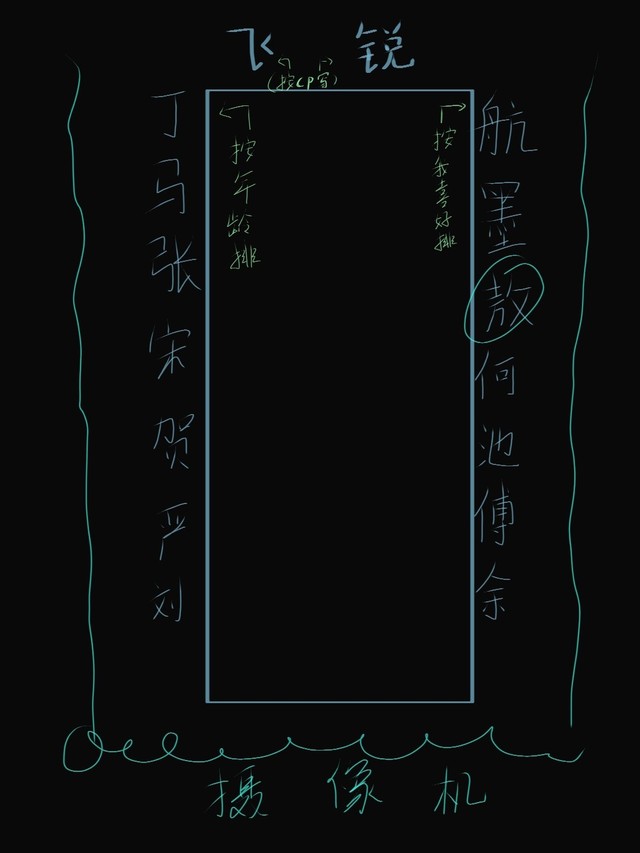 飞 锐
(按CP写)
丁
马
张
宋
贺
严
刘
按年龄排
按我喜好排
航
墨
敖
何
池
傅
余
摄像机